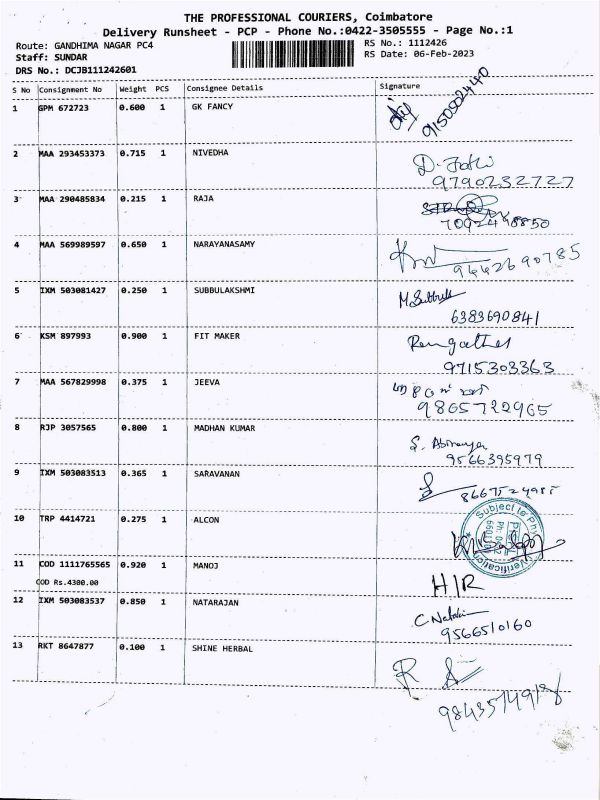 THE PROFESSIONAL COURIERS, Coimbatore
Delivery Runsheet - PCP - Phone No.:0422-3505555 - Page No.:1
Route: GANDHIMA NAGAR PC4
RS No.: 1112426
Staff: SUNDAR
RS Date: 06-Feb-2023
DRS No.: DCJB111242601
S No Consignment No Weight PCS Consignee Details Signature
1 GPM 672723 0.600 1 GK FANCY
9150502440
2 MAA 293453373 0.715 1 NIVEDHA
9790232727
3 MAA 290485834 0.215 1 RAJA
4 MAA 569989597 0.650 1 NARAYANASAMY
9442690785
5 IXM 503081427 0.250 1 SUBBULAKSHMI M.Subbulk
6383690841
6 KSM 897993 0.900 1 FIT MAKER
9715303363
7 MAA 567829998 0.375 1 JEEVA
9865722965
8 RJP 3057565 0.800 1 MADHAN KUMAR
9566395979
9 IXM 503083513 0.365 1 SARAVANAN
10 TRP 4414721 0.275 1 ALCON
Subject to Phy Verification
11 COD 1111765565 0.920 1 MANOJ
COD Rs.4300.00
H/R
12 IXM 503083537 0.850 1 NATARAJAN
9566510160
13 RKT 8647877 0.100 1 SHINE HERBAL